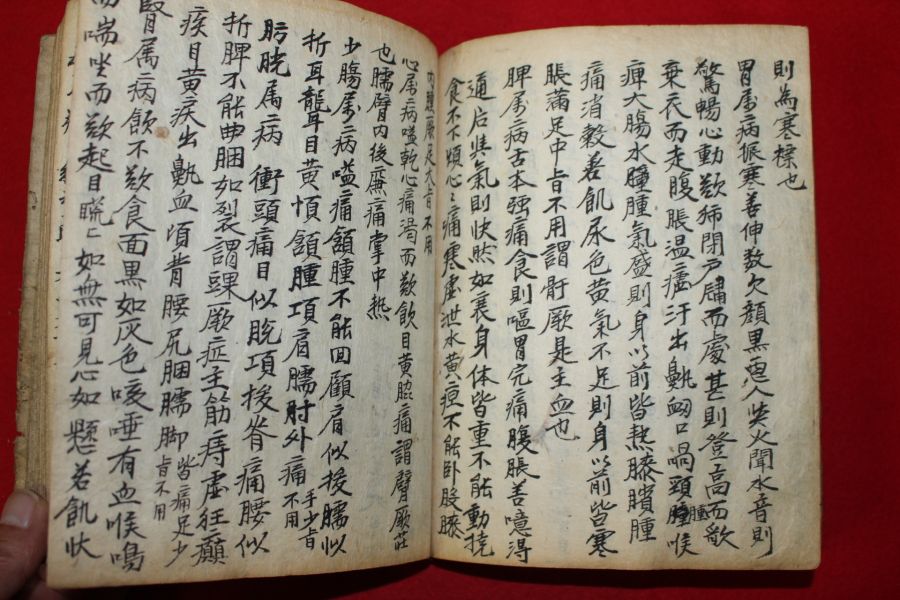 則為寒慄也
胃属病振寒善伸数欠顔黒惡人與火聞水音則
驚暢心動欲獨閉戶牗而處甚則登高而歌
棄衣而走腹脹温瘧汗出鼽衂口喎頸腫喉
痺大腸水腫腫氣盛則身以前皆熱膝臏腫
痛消穀善飢尿色黄氣不足則身以前皆寒
脹滿足中㫖不用謂骭厥是主血也
脾属病舌本强痛食則嘔胃完痛腹脹善噫得
通后與氣則快然如衰身体皆重不能動挠
食不下煩心心痛寒虚泄水黄疸不能卧股膝
內腫厥足大㫖不用
心属病嗌乾心痛渴而欲飲目黄脇痛謂臂厥症
也臑臂內後廉痛掌中热
少腸属病嗌痛頷腫不能回顧肩似拔臑似
折耳聾目黄頄頷腫項肩臑肘外痛手少㫖不用
膀胱属病衝頭痛目似脱項拔脊痛腰似
折脾不能曲膕如裂謂踝厥症主筋痔虚狂癲
疾目黄疾出鼽血項背腰尻膕臑脚皆痛足少㫖不用
腎属病飲不欲食面黒如灰色咳唾有血喉鳴
而喘坐而欲起目䀮䀮如無可見心如懸若飢状